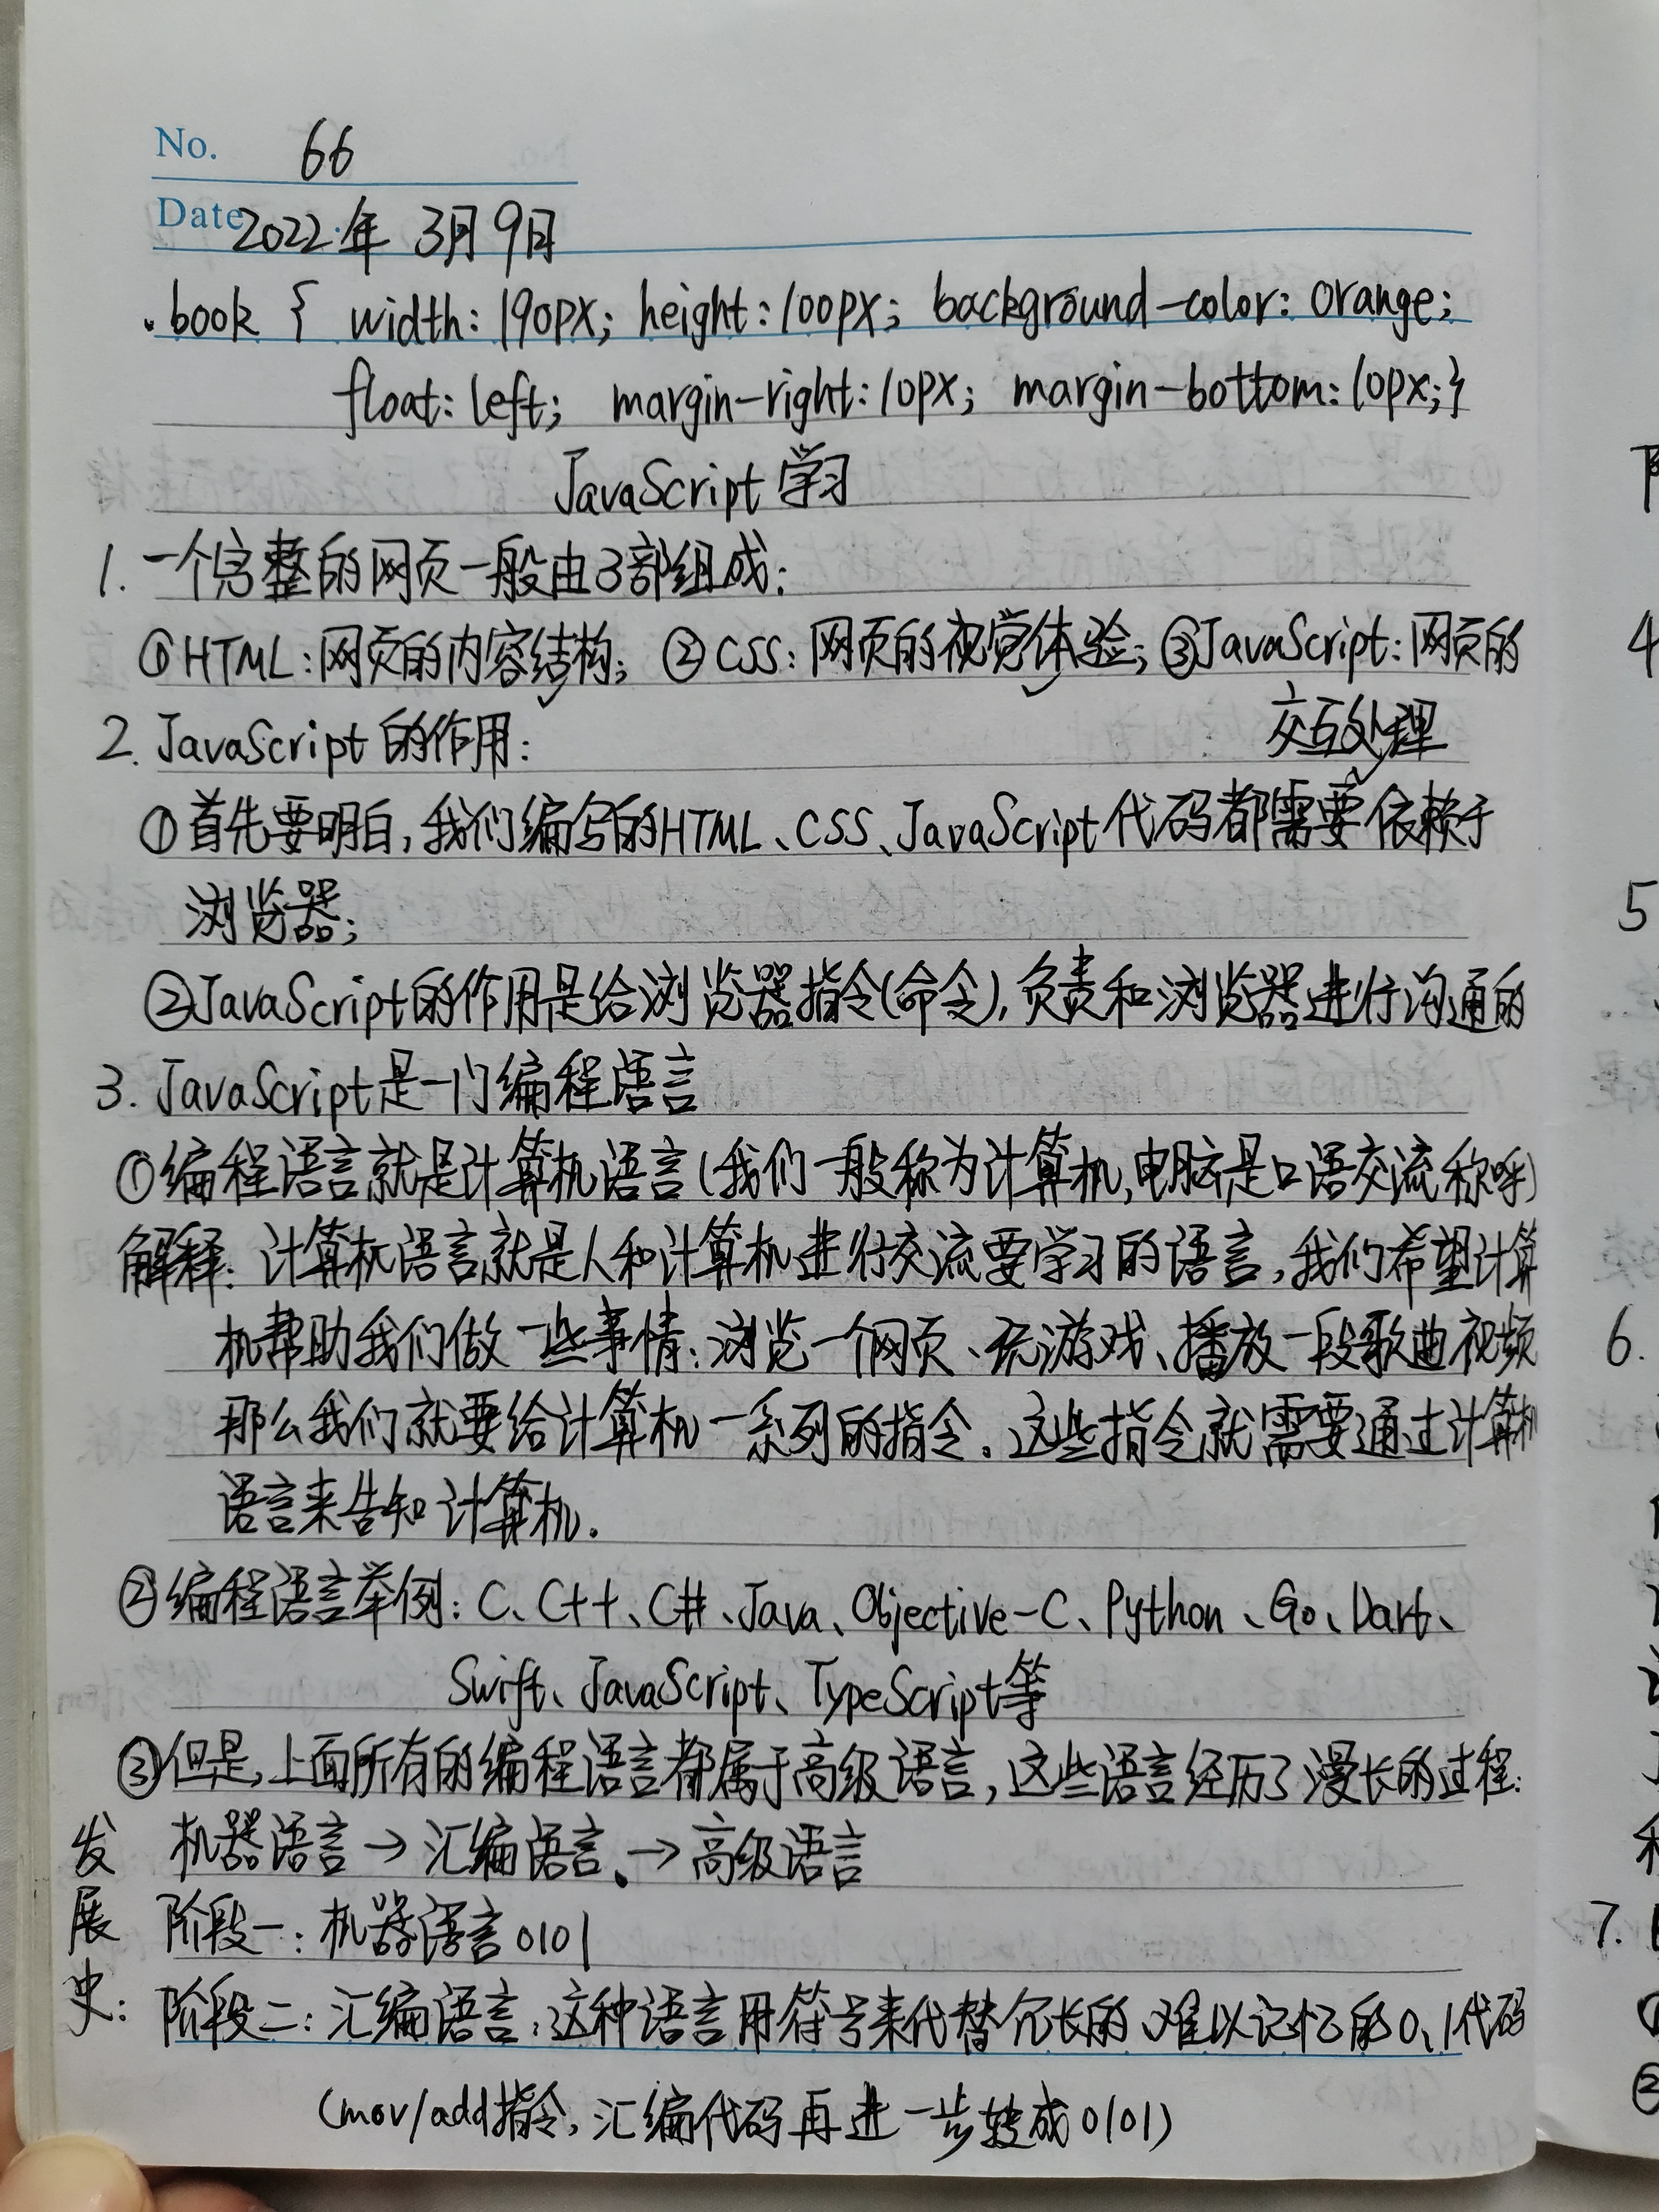 No. 66
Date 2022年 3月9日
.book { width: 190px; height: 100px; background-color: orange;
float: left; margin-right: 10px; margin-bottom: 10px;}
JavaScript 学习
1. 一个完整的网页一般由3部组成:
①HTML: 网页的内容结构; ②CSS: 网页的视觉体验; ③JavaScript: 网页的
交互处理
2. JavaScript 的作用:
①首先要明白, 我们编写的HTML、CSS、JavaScript 代码都需要依赖于
浏览器;
②JavaScript的作用是给浏览器指令(命令), 负责和浏览器进行沟通的
3. JavaScript是一门编程语言
①编程语言就是计算机语言(我们一般称为计算机, 电脑是口语交流称呼)
解释: 计算机语言就是人和计算机进行交流要学习的语言, 我们希望计算
机帮助我们做一些事情: 浏览一个网页、玩游戏、播放一段歌曲视频
那么我们就要给计算机一系列的指令. 这些指令就需要通过计算机
语言来告知计算机.
②编程语言举例: C、C++、C#、Java、Objective-C、Python、Go、Dart、
Swift、JavaScript、TypeScript等
③但是, 上面所有的编程语言都属于高级语言, 这些语言经历了漫长的过程:
发展史: 机器语言 → 汇编语言、→ 高级语言
阶段一: 机器语言 0101
阶段二: 汇编语言, 这种语言用符号来代替冗长的、难以记忆的0、1代码
(mov/add指令, 汇编代码再进一步转成0101)
4
5
6.
7.
①
②